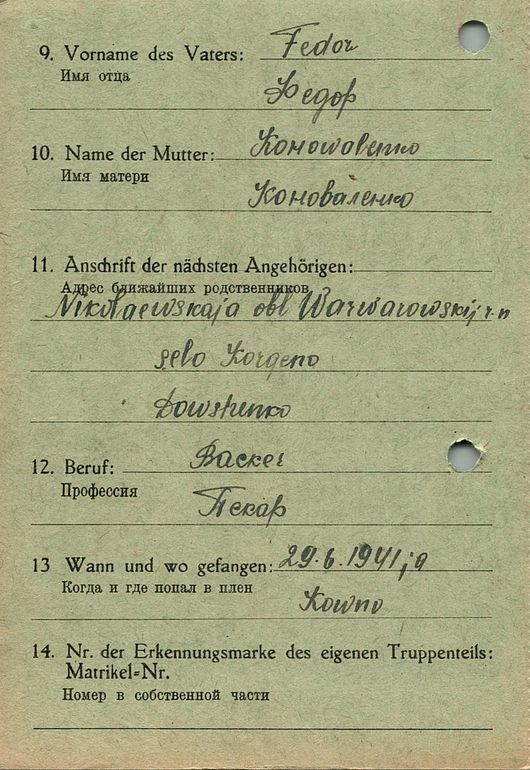 9. Vorname des Vaters: Fedor
Имя отца
Федор
10. Name der Mutter: Коноwаlенко
Имя матери
Коноваленко
11. Anschrift der nächsten Angehörigen:
Адрес ближайших родственников
Nikolaewskaja obl Warwarowskij r-n
selo Korgeno
Dowshenko
12. Beruf: Backer
Профессия
Пекар
13 Wann und wo gefangen: 29.6.1941
Когда и где попал в плен
Kowno
14. Nr. der Erkennungsmarke des eigenen Truppenteils:
Matrikel-Nr.
Номер в собственной части